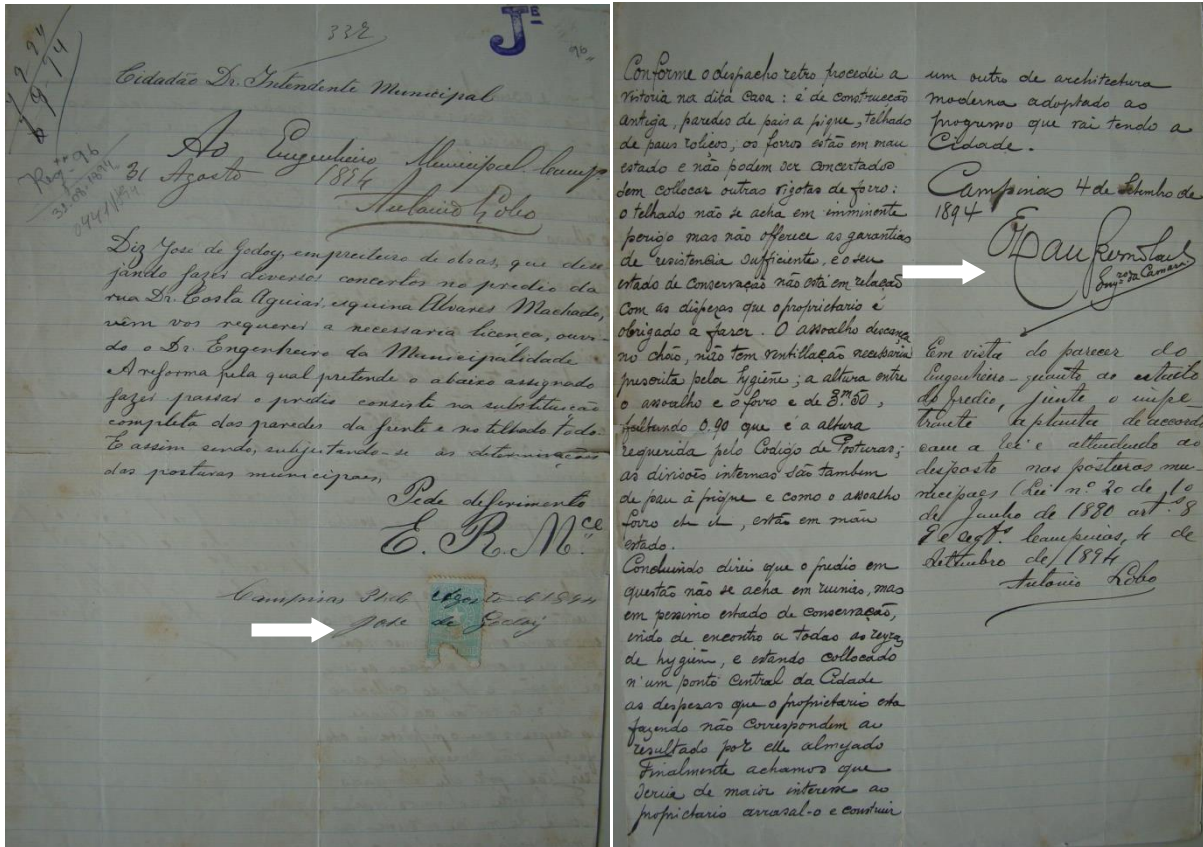 332
J.E
96
Cidadão Dr. Intendente Municipal
Ao Engenheiro Municipal. Camp.
31 Agosto 1894
Antonio Lobo
Reg.to 96
31-08-1894
Diz Jose de Godoy, empreiteiro de obras, que dese-
jando fazer diversos concertos no predio da
rua Dr. Costa Aguiar, esquina Alvares Machado,
vem vos requerer a necessaria licença, ouvin-
do o Dr. Engenheiro da Municipalidade
A reforma pela qual pretende o abaixo assignado
fazer passar o predio consiste na substituição
completa das paredes da frente e no telhado todo.
E assim sendo, subjeitando-se ás determinações
das posturas municipaes,
Pede deferimento
E. R. M.ce
Campinas 31 de Agosto de 1894
Jose de Godoy
Conforme o despacho retro procedei a
vistoria na dita casa: é de construcção
antiga, paredes de pau a pique, telhado
de paus roliços, os forros estão em mau
estado e não podem ser concertados
sem collocar outras vigotas de forro:
o telhado não se acha em imminente
perigo mas não offerece as garantias
de resistencia sufficiente, e o seu
estado de conservação não está em relação
com as dispezas que o proprietario é
obrigado a fazer. O assoalho descança
no chão, não tem ventillação necessaria
prescrita pela hygiene; a altura entre
o assoalho e o forro e de 3m50,
faltando 0,90 que é a altura
requerida pelo Codigo de Posturas;
as divisões internas são tambem
de pau à pique e como o assoalho
forro etc etc, estão em máu
estado.
Concluindo direi que o predio em
questão não se acha em ruinas, mas
em pessimo estado de conservação,
indo de encontro a todas as regras
de hygiene, e estando collocado
n'um ponto Central da Cidade
as despezas que o proprietario esta
fazendo não correspondem ao
resultado por elle almejado
Finalmente achamos que
seria de maior interesse ao
proprietario arrasal-o e construir
um outro de architectura
moderna adoptado ao
progresso que vai tendo a
Cidade.
Campinas 4 de Setembro de
1894
Eng.ro da Camara
Em vista do parecer do
Engenheiro quanto ao estado
do predio, junte o impe-
trante a planta de accordo
com a lei e attendendo ao
desposto nas posturas mu-
nicipaes (Lei nº 20 de 10
de Junho de 1880 art.os 8
9 e segts. Campinas, 4 de
Setembro de 1894
Antonio Lobo